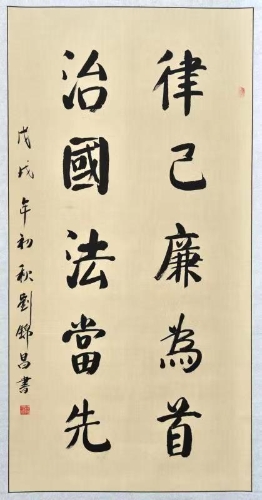 律己廉為首
治國法當先
戊戌年初秋劉錦昌書